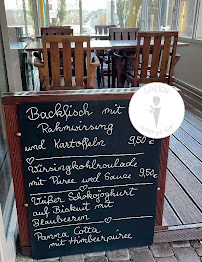 Backfisch mit
Rahmwirsing
und Kartoffeln 9,50€
Wirsingkohlroulade
mit Püree und Sauce 9,50€
Weißer Schokojoghurt
auf Biskuit mit
Blaubeeren
Panna Cotta
mit Himbeerpüree